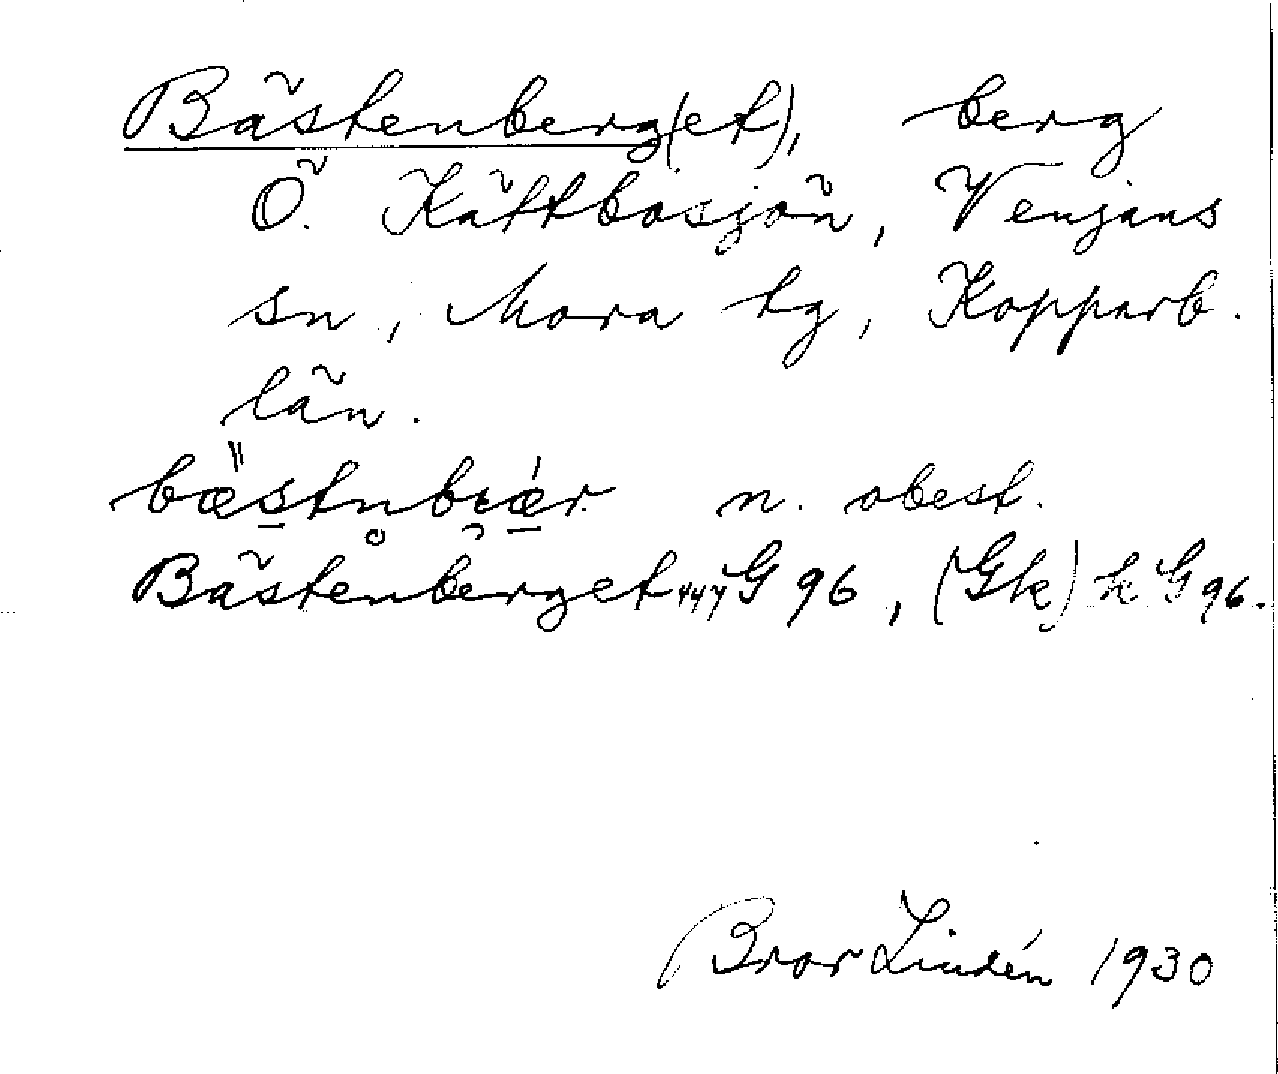 Bästenberg(et), berg
Ö. Kättbosjön, Venjans
sn, Mora tg, Kopparb.
län.
n. obest.
Bästenberget 447 G 96, (Gk) k G 96.
Bror Lindén 1930